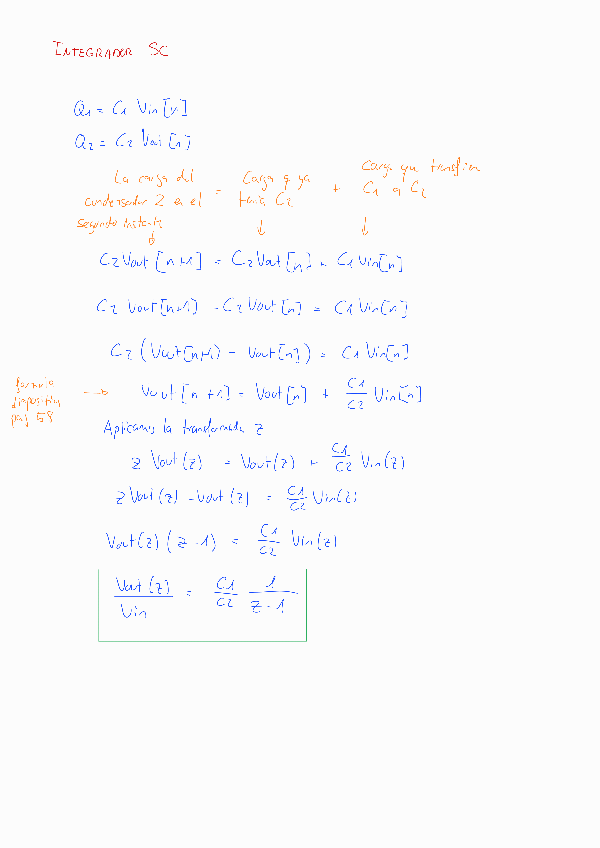 INTEGRADOR SC
Q1 = C1 Vin[n]
Q2 = C2 Vout[n]
La carga del condensador 2 en el segundo instante = Carga q ya tenía C2 + Carga que transfiere C1 a C2
C2 Vout[n+1] = C2 Vout[n] + C1 Vin[n]
C2 Vout[n+1] - C2 Vout[n] = C1 Vin[n]
C2 (Vout[n+1) - Vout[n]) = C1 Vin[n]
formula diapositiva pag. 58 --> Vout[n+1] = Vout[n] + C1/C2 Vin[n]
Aplicamos la transformada z
z Vout(z) = Vout(z) + C1/C2 Vin(z)
z Vout(z) - Vout(z) = C1/C2 Vin(z)
Vout(z) (z-1) = C1/C2 Vin(z)
Vout(z)/Vin = C1/C2 1/z-1